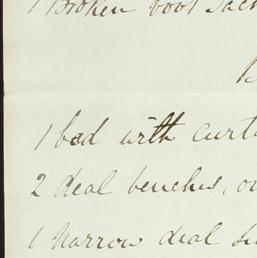 1 Broken boot Jack
1 bed with curt
2 deal benches, o
1 Narrow deal